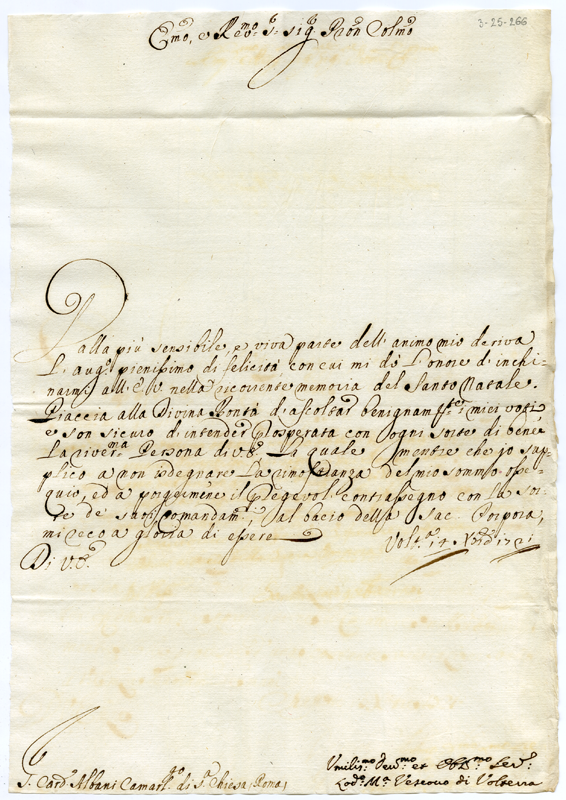 3-25-266
Emo, e Revmo Sr. sigr Pron Colmo
Dalla più sensibile, e viva parte dell'animo mio deriva
l'augo pienissimo di felicità, con cui mi dò l'onore d'inchi-
narmi all'E.V. nella ricorrente memoria del Santo Natale.
Piaccia alla Divina Bontà d'ascoltar benignamte i miei voti
e son sicuro d'intender prosperata con ogni sorte di bene
la riverma Persona di V.Ea La quale mentre che io sup-
plico a non isdegnare la rimostranza del mio sommo osse-
quio, ed a porgermene il pregevol contrassegno con la sor-
te de' suoi comandamti, al bacio della Sac. Porpora,
mi reco a gloria di essere
Volta 14 Xbre 1721
Di V.Ea
Sr Cardl Albani Camarlgo di Sa Chiesa, Roma,
Vmilismo Devmo et Obbmo Sere
Lodo Ma Vescovo di Volterra